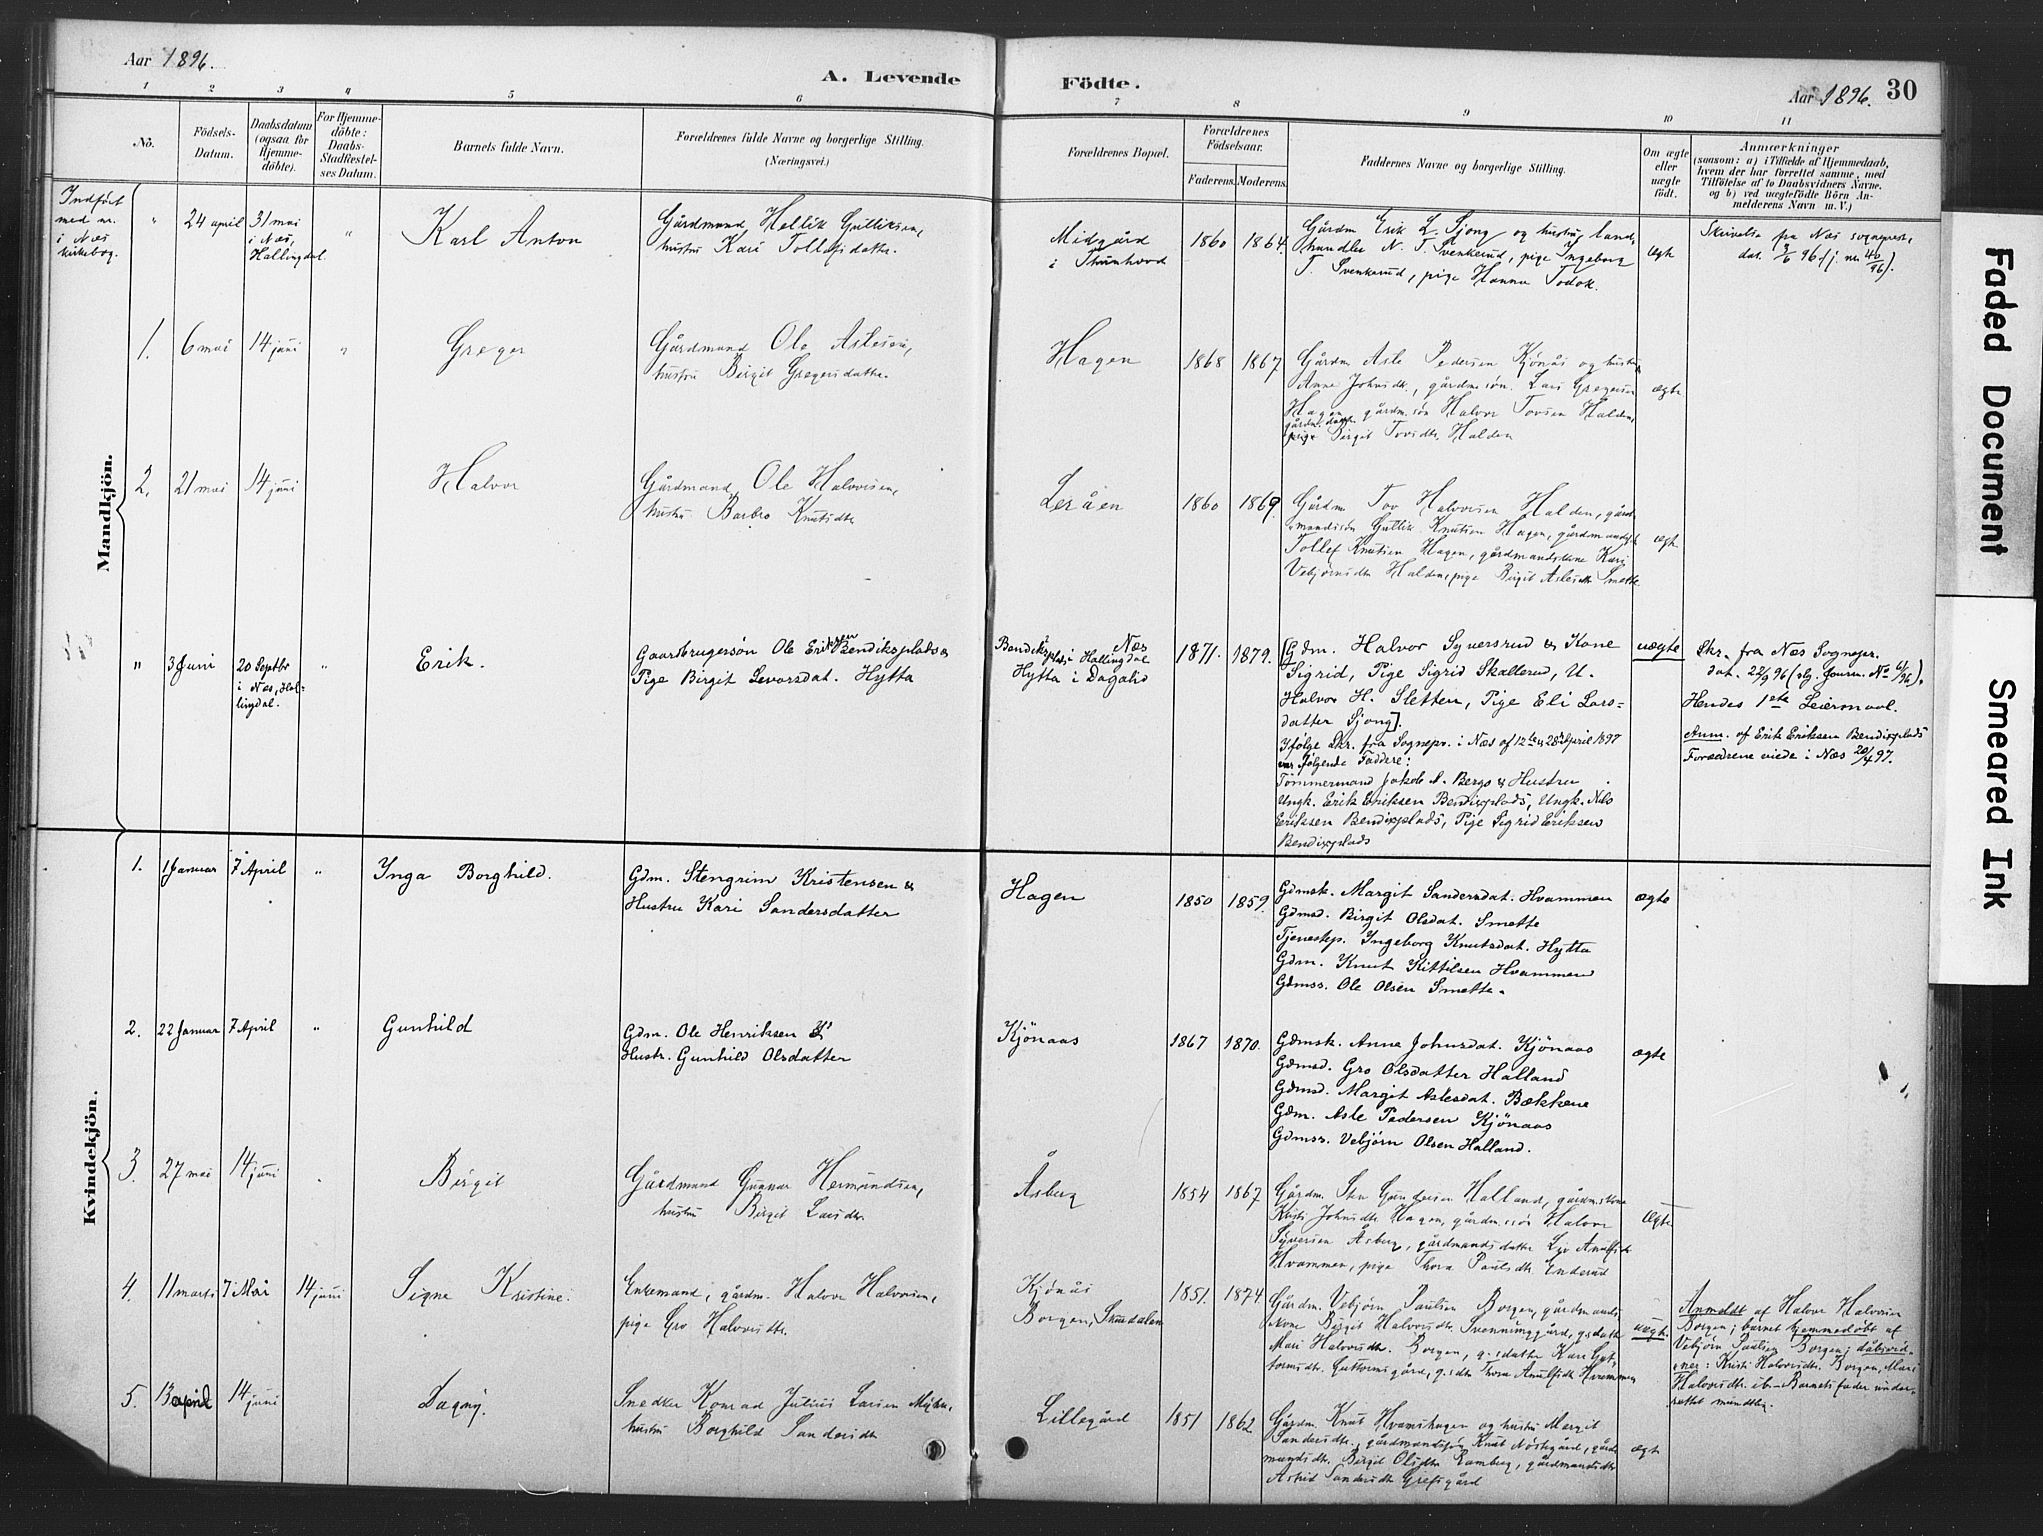 Aar 1896.
A. Levende
Födte.
Aar 1896. 30
1 2 3 4 5 6 7 8 9 10 11
No.
Födsels-
Datum.
Daabsdatum
(ogsaa for
Hjemme-
döbte).
For Hjemme-
döbte:
Daabs-
Stadfæstel-
ses Datum.
Barnets fulde Navn.
Forældrenes fulde Navne og borgerlige Stilling.
(Næringsvei.)
Forældrenes Bopæl.
Forældrenes
Födselsaar.
Faderens. Moderens.
Faddernes Navne og borgerlige Stilling.
Om ægte
eller
uægte
födt.
Anmærkninger
(saasom: a) i Tilfælde af Hjemmedaab,
hvem der har forrettet samme, med
Tilföielse af to Daabsvidners Navne,
og b) ved uægtefödte Börn An-
melderens Navn m. V.)
Mandkjön.
Indført
med nr.
i Næs
kirkebog.
"
24 april
31 mai
i Næs,
Hallingdal.
"
Karl Anton
Gårdmand Hellik Gulliksen,
hustru Kari Tollefsdatter.
Midgård
i Thunhovd
1860
1864.
Gårdm Erik L. Sjong og hustru, land-
handler N. T. Svenkerud, pige Ingeborg
T. Svenkerud, pige Hanna Todok.
ægte
Skrivelse fra Næs sogneprest,
dat. 3/6 96 (j. nr. 40/96).
1.
6 mai
14 juni
"
Greger
Gårdmand Ole Aslesen,
hustru Birgit Gregersdatter.
Hagen
1868
1867
Gårdm Asle Pedersen Kjönås og hustru
Anne Johnsdtr, gårdm.søn Lars Gregersen
Hagen, gårdm.søn Halvor Tovsen Halden,
gårdm. datter
pige Birgit Tovsdtr. Halden
ægte
2.
21 mai
14 juni
Halvor
Gårdmand Ole Halvorsen,
hustru Barbro Knutsdtr
Leråen
1860
1869.
Gårdm. Tov Halvorsen Halden, gård-
mandssøn Gullik Knutsen Hagen, gårdmandss.
Tollef Knutsen Hagen, gårdmandskone Kari
Vebjørnsdtr Halden, pige Birgit Aslesdtr Smette.
ægte
"
3 Juni
20 Septbr
i Næs, Hal-
lingdal.
"
Erik.
Gaardbrugersön Ole Eriksen Bendiksplads &
Pige Birgit Levorsdat. Hytta
Bendiksplads i Næs
Hallingdal
Hytta i Dagalid
1871.
1879.
[Gdm. Halvor Syversrud & Kone
Sigrid, Pige Sigrid Skallerud, U.
Halvor H. Sletten, Pige Eli Lars-
datter Sjong].
Ifølge Skr. fra Sognepr. i Næs af 12te & 28de April 1897
var følgende Faddere:
Tømmermand Jakob A. Bergo & Hustru
Ungk. Erik Eriksen Bendixplads, Ungk. Nils
Eriksen Bendixplads, Pige Sigrid Eriksen
Bendixplads
uægte
Skr. fra Næs Sognepr.
dat. 22/9 96 (dg. Journ. No 61/96).
Hendes 1ste Leiermaal.
Anm. af Erik Eriksen Bendixplads
Forældrene viede i Næs 20/4 97.
Kvindekjön.
1.
1 Januar
7 April
"
Inga Borghild.
Gdm. Stengrim Kristensen &
Hustru Kari Sandersdatter
Hagen
1850
1859.
Gdmsk. Margit Sandersdat. Hvammen
Gdmsd. Birgit Olsdat. Smette
Tjenestep. Ingeborg Knutsdat. Hytta
Gdm. Knut Kittilsen Hvammen
Gdmss. Ole Olsen Smette.
ægte
2.
22 Januar
7 April
"
Gunhild
Gdm. Ole Henriksen &
Hustr. Gunhild Olsdatter
Kjönaas
1867
1870.
Gdmsk. Anne Johnsdat. Kjönaas
Gdmsd. Gro Olsdatter Halland
Gdmsd. Margit Aslesdat. Bækkene
Gdm. Asle Pedersen Kjönaas
Gdmss. Vebjörn Olsen Halland.
ægte
3.
27 mai
14 juni
Birgit
Gårdmand Gunnar Hermundsen,
hustru Birgit Larsdtr.
Åsberg
1854
1867
Gårdm. Sten Gundersen Halland, gårdm.skone
Kristi Johnsdtr Hagen, gårdm.søn Halvor
Syversen Åsberg, gårdmandsdatter Liv Anulfsdtr
Hvammen, pige Thora Paulsdtr. Enderud
Ægte
4.
11 marts
7 Mai
14 juni
Signe Kristine.
Enkemand, gårdm. Halvor Halvorsen,
pige Gro Halvorsdtr.
Kjönås
Borgen, Skurdalen
1851.
1874
Gårdm. Vebjørn Paulsen Borgen, gårdmands-
kone Birgit Halvorsdtr. Svenninggård, g.sdatter
Mari Halvorsdtr. Borgen, g.sdatter Kari Gut-
tormsdtr. Guttormsgård, g.sdtr Thora Anulfsdtr Hvammen
uægte.
Anmeldt af Halvor Halvorsen
Borgen; barnet hjemmedøbt af
Vebjørn Paulsen Borgen; dåbsvid-
ner: Kristi Halvorsdtr. Borgen, Mari
Halvorsdtr. ib. – Barnets fader under-
rettet mundtlig.
5.
13 april
14 juni
Dagny.
Snedker Konrad Julius Larsen Myhre,
hustru Borghild Sandersdtr
Lillegård
1851
1862
Gårdm. Knut Hvamshagen og hustru Margit
Sandersdtr., gårdmandssøn Knut Nøstegård, gård-
mandsdtr. Birgit Olsdtr Ramberg, gårdmandsdtr
Astrid Sandersdtr Grefsgård
ægte
Faded Document
Smeared Ink